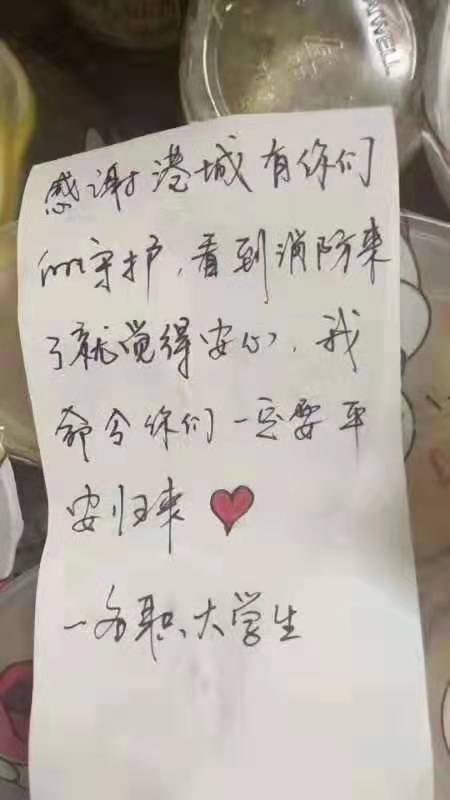 AIWELL
感谢港城有你们
的守护,看到消防来
了就觉得安心,我
命令你们一定要平
安归来
一名职大学生